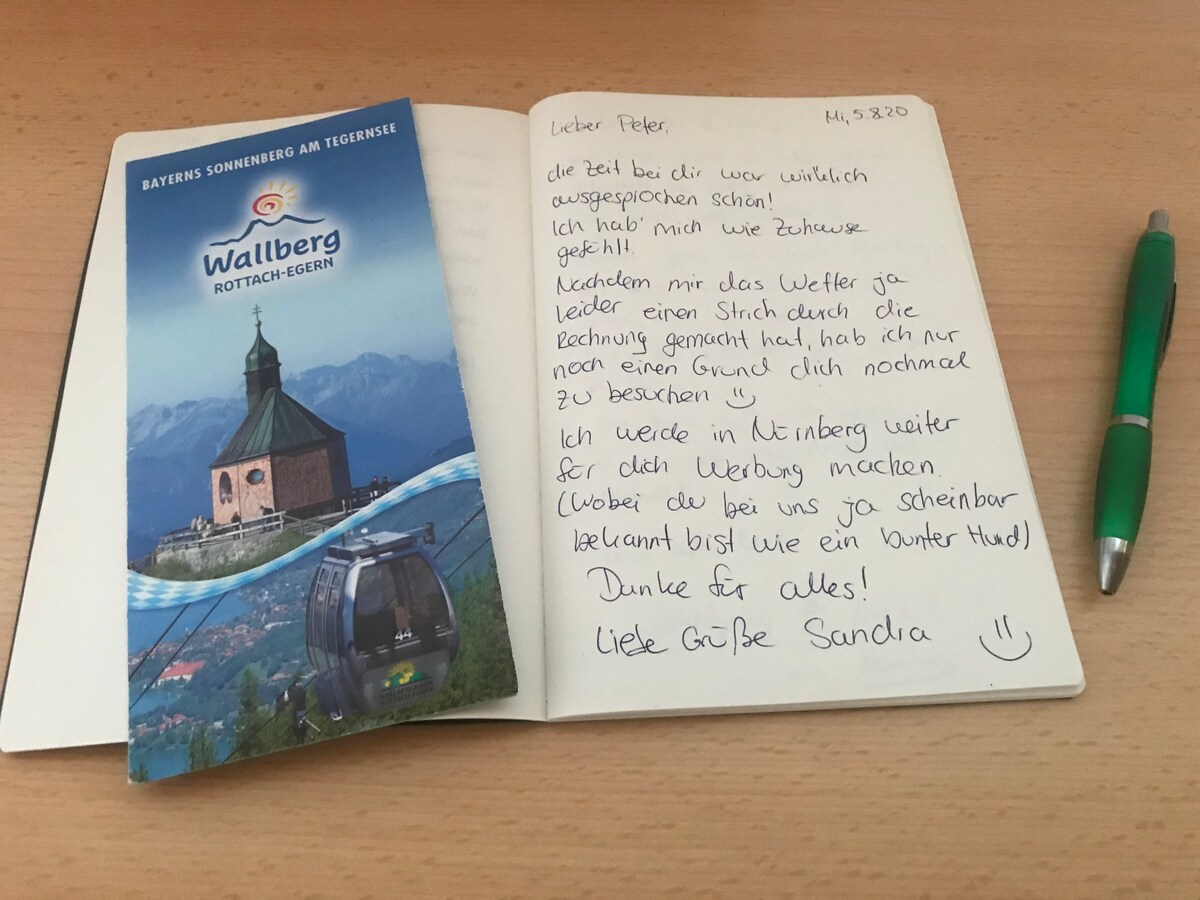 BAYERNS SONNENBERG AM TEGERNSEE
Wallberg
ROTTACH-EGERN
44
Mi, 5.8.20
Lieber Peter,
die Zeit bei dir war wirklich
ausgesprochen schön!
Ich hab' mich wie Zuhause
gefühlt.
Nachdem mir das Wetter ja
leider einen Strich durch die
Rechnung gemacht hat, hab ich nur
noch einen Grund dich nochmal
zu besuchen
Ich werde in Nürnberg weiter
für dich Werbung machen.
(Wobei du bei uns ja scheinbar
bekannt bist wie ein bunter Hund)
Danke für alles!
Liebe Grüße Sandra